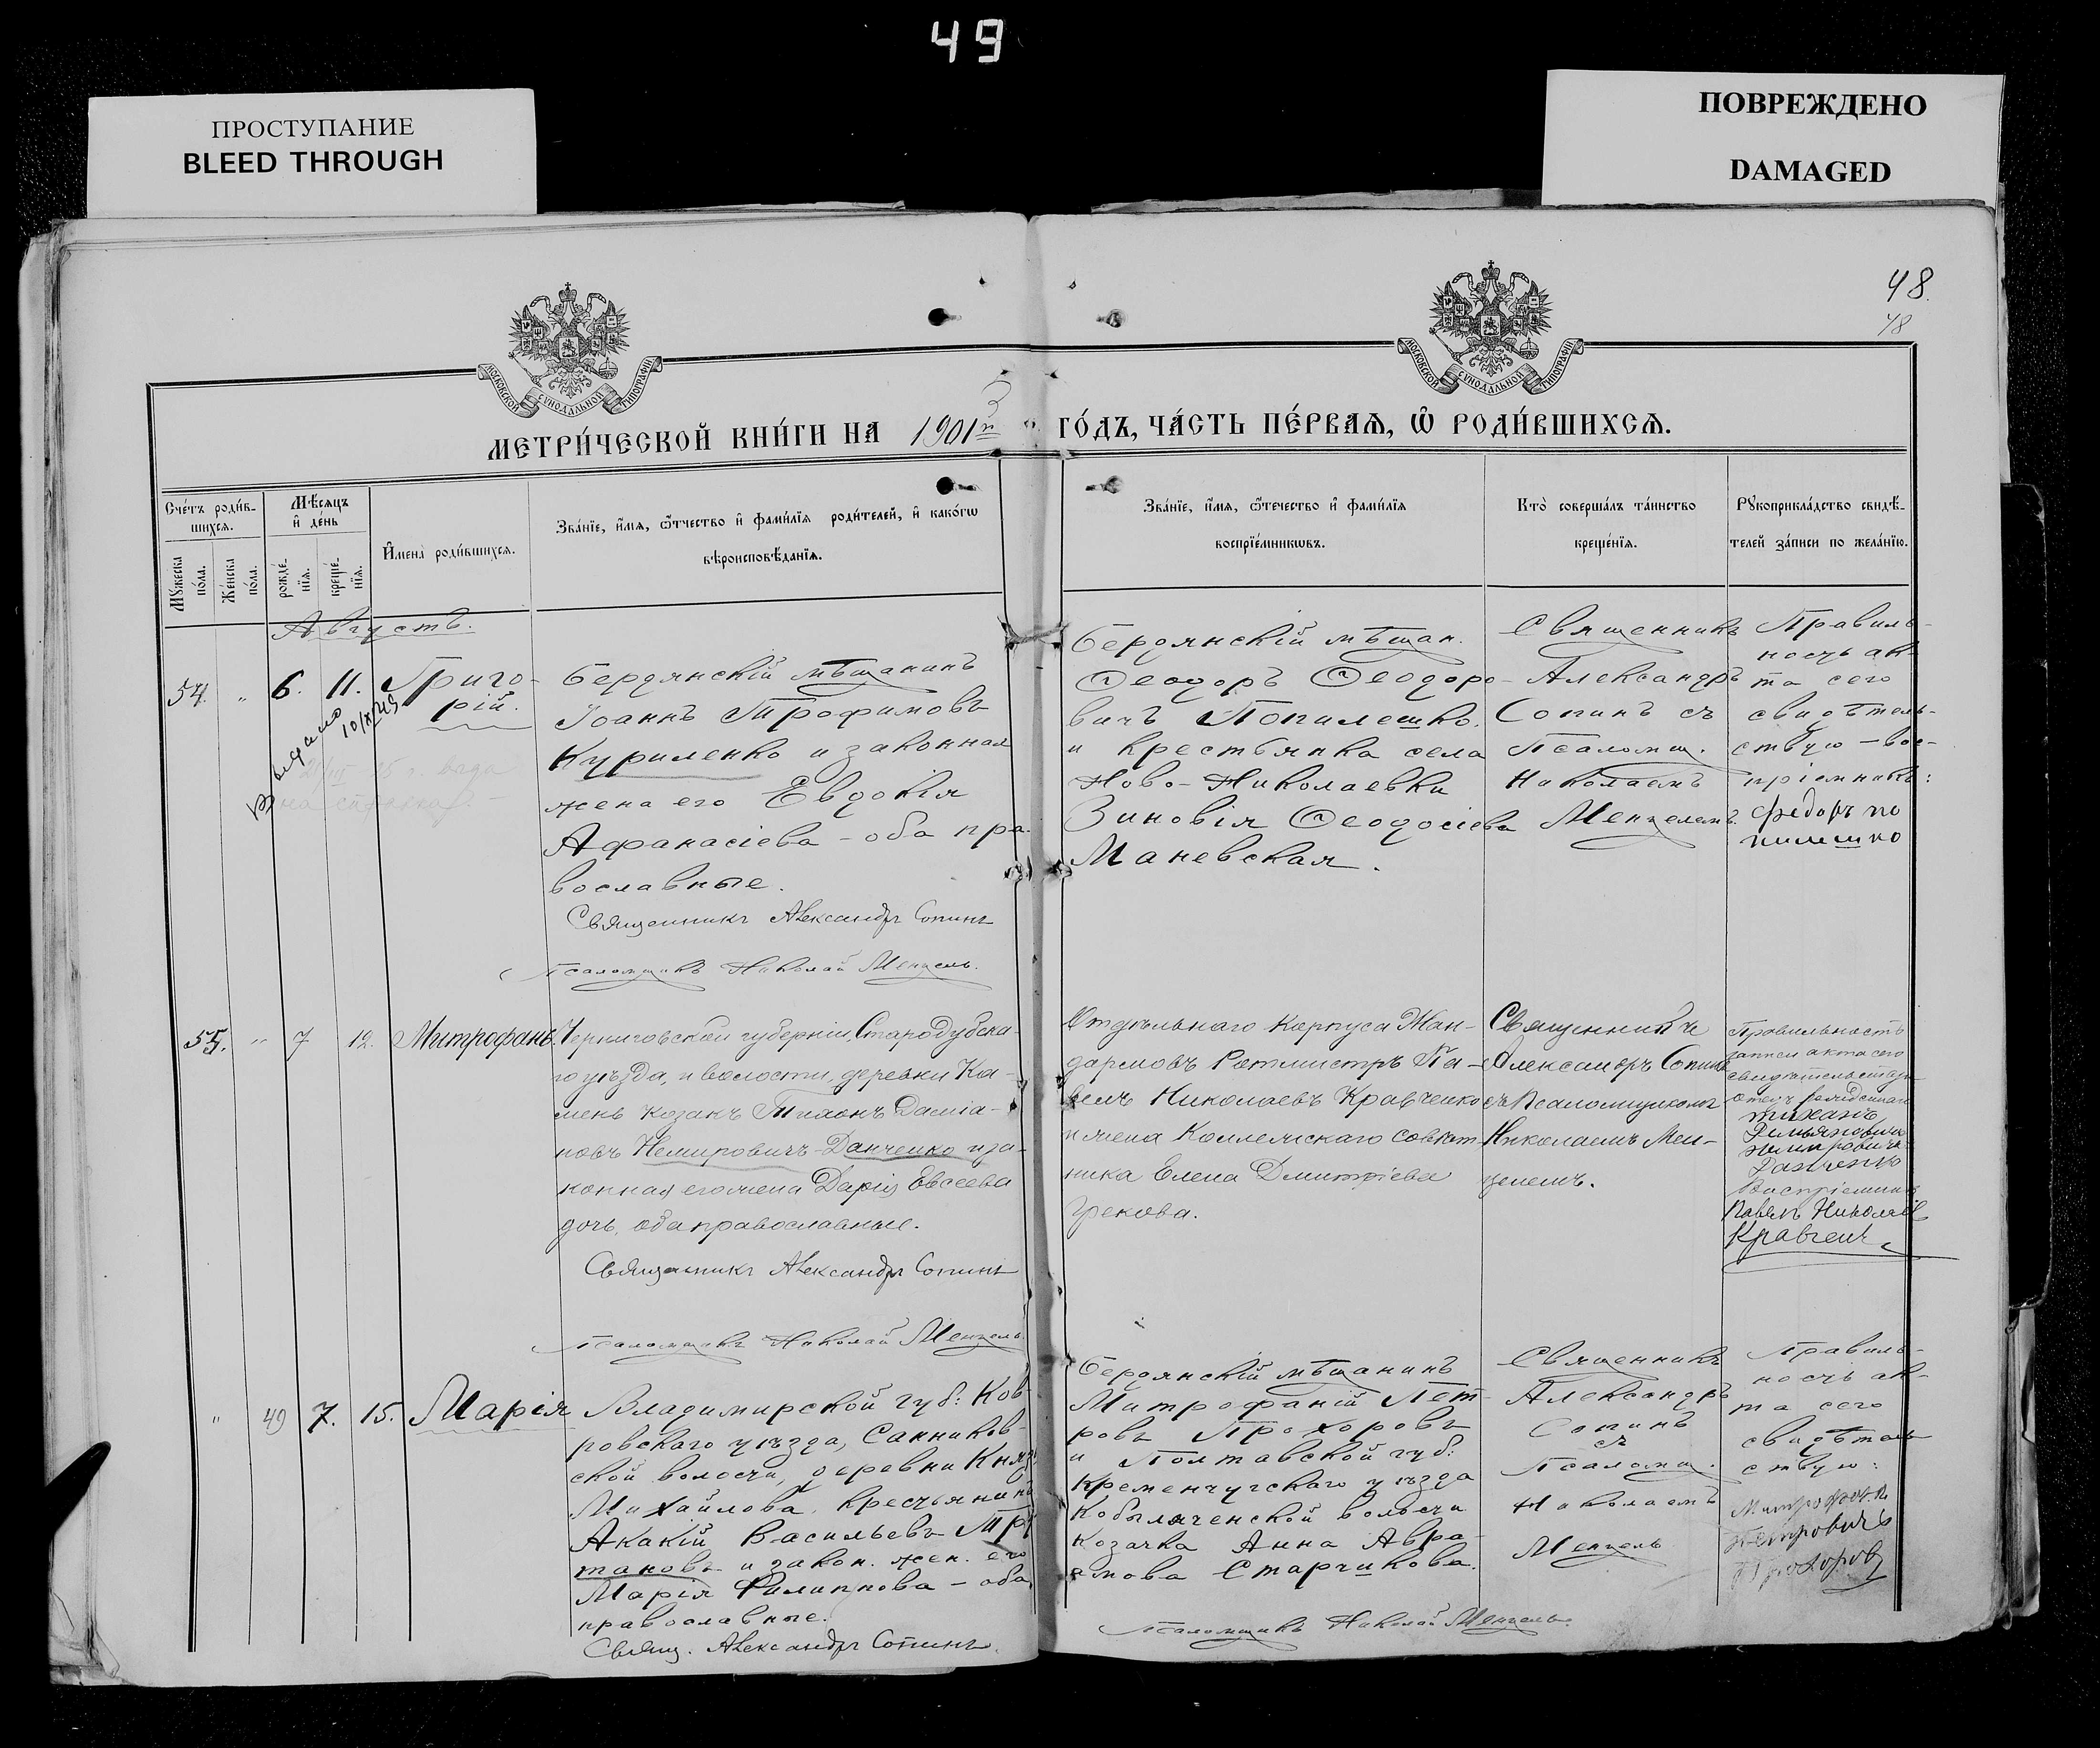 49
ПРОСТУПАНИЕ
BLEED THROUGH
ПОВРЕЖДЕНО
DAMAGED
48.
48
МОСКОВСКОЙ СѴНОДАЛЬНОЙ ТИПОГРАФІИ
МОСКОВСКОЙ СѴНОДАЛЬНОЙ ТИПОГРАФІИ
МЕТРИ́ЧЕСКОЙ КНИ́ГИ НА 1901 3 ГО́ДЪ, ЧА́СТЬ ПЕ́РВАѦ, Ѽ РОДИ́ВШИХСѦ.
Сче́тъ роди́в-
шихсѧ.
Мꙋ́жеска
по́ла.
Же́нска
по́ла.
Мѣ́сѧцъ
и҆ де́нь
рожде́-
нїѧ.
креще́-
нїѧ.
И҆мена̀ роди́вшихсѧ.
Зва́нїе, и҆́мѧ, ѻ҆́тчество и҆ фами́лїѧ роди́телей, и҆ како́гѡ
вѣроисповѣ́данїѧ.
Зва́нїе, и҆́мѧ, ѻ҆́течество и҆ фами́лїѧ
воспрїе́мникѡвъ.
Кто̀ соверша́лъ та́инство
креще́нїѧ.
Рꙋкоприкла́дство свидѣ́-
телей за́писи по жела́нїю.
Августъ.
54. " 6. 11. Григо-
рій.
Выдано
10/X 49
Бердянскій мѣщанинъ
Іоаннъ Трофимовъ
Куриленко и законная
жена его Евдокія
Афанасіева - оба пра-
вославные.
Священникъ Александръ Сопинъ
Псаломщикъ Николай Менцель.
Бердянскій мѣщан.
Ѳеодоръ Ѳеодоро-
вичъ Попилешко.
и крестьянка села
Ново-Николаевки
Зиновія Ѳеодосіева
Маневская.
Священникъ
Александръ
Сопинъ съ
Псаломщ.
Николаемъ
Менцелемъ.
Правиль-
ность ак-
та сего
свидѣтель-
ствую - вос-
пріемникъ:
Федоръ по
пилешко
55. " 7 12. Митрофанъ.
Черниговской губерніи, Стародубска-
го уѣзда, и волости, деревни Ка-
мень козакъ Тихонъ Даміа-
новъ Немировичъ-Данченко и за-
конная его жена Дарія Евсеева
дочь, оба православные.
Священникъ Александръ Сопинъ
Псаломщикъ Николай Менцель
Отдѣльнаго Корпуса Жан-
дармовъ Ротмистръ Па-
велъ Николаевъ Кравченко
и жена Коллежскаго совѣт-
ника Елена Дмитріева
Грекова.
Священникъ
Александръ Сопинъ
съ Псаломщикомъ
Николаемъ Мен-
целемъ.
Правильность
записи акта сего
свидѣтельствую
Отецъ
тихонъ
Данченко
Воспріемникъ
Павелъ Николаев
Кравченк
" 49 7. 15. Марія
Владимирской губ: Ков-
ровскаго уѣзда, Санников-
ской волости, деревни Княз
Михайлова, крестьянинъ
Акакій Васильевъ Тру
тановъ и закон. жен. его
Марія Филиппова - оба
православные.
Свящ. Александръ Сопинъ.
Бердянскій мѣщанинъ
Митрофаній Пет-
ровъ Прохоровъ
и Полтавской губ:
Кременчугскаго уѣзда
Кобыляченской волости
Козачка Анна Авра-
амова Старчикова.
Священникъ
Александръ
Сопинъ
съ
Псаломщ.
Николаемъ
Менцель
Правиль-
ность ак-
та сего
свидѣтель
ствую:
Митрофан
Петровичъ
Прохоров
Псаломщикъ Николай Менцель.